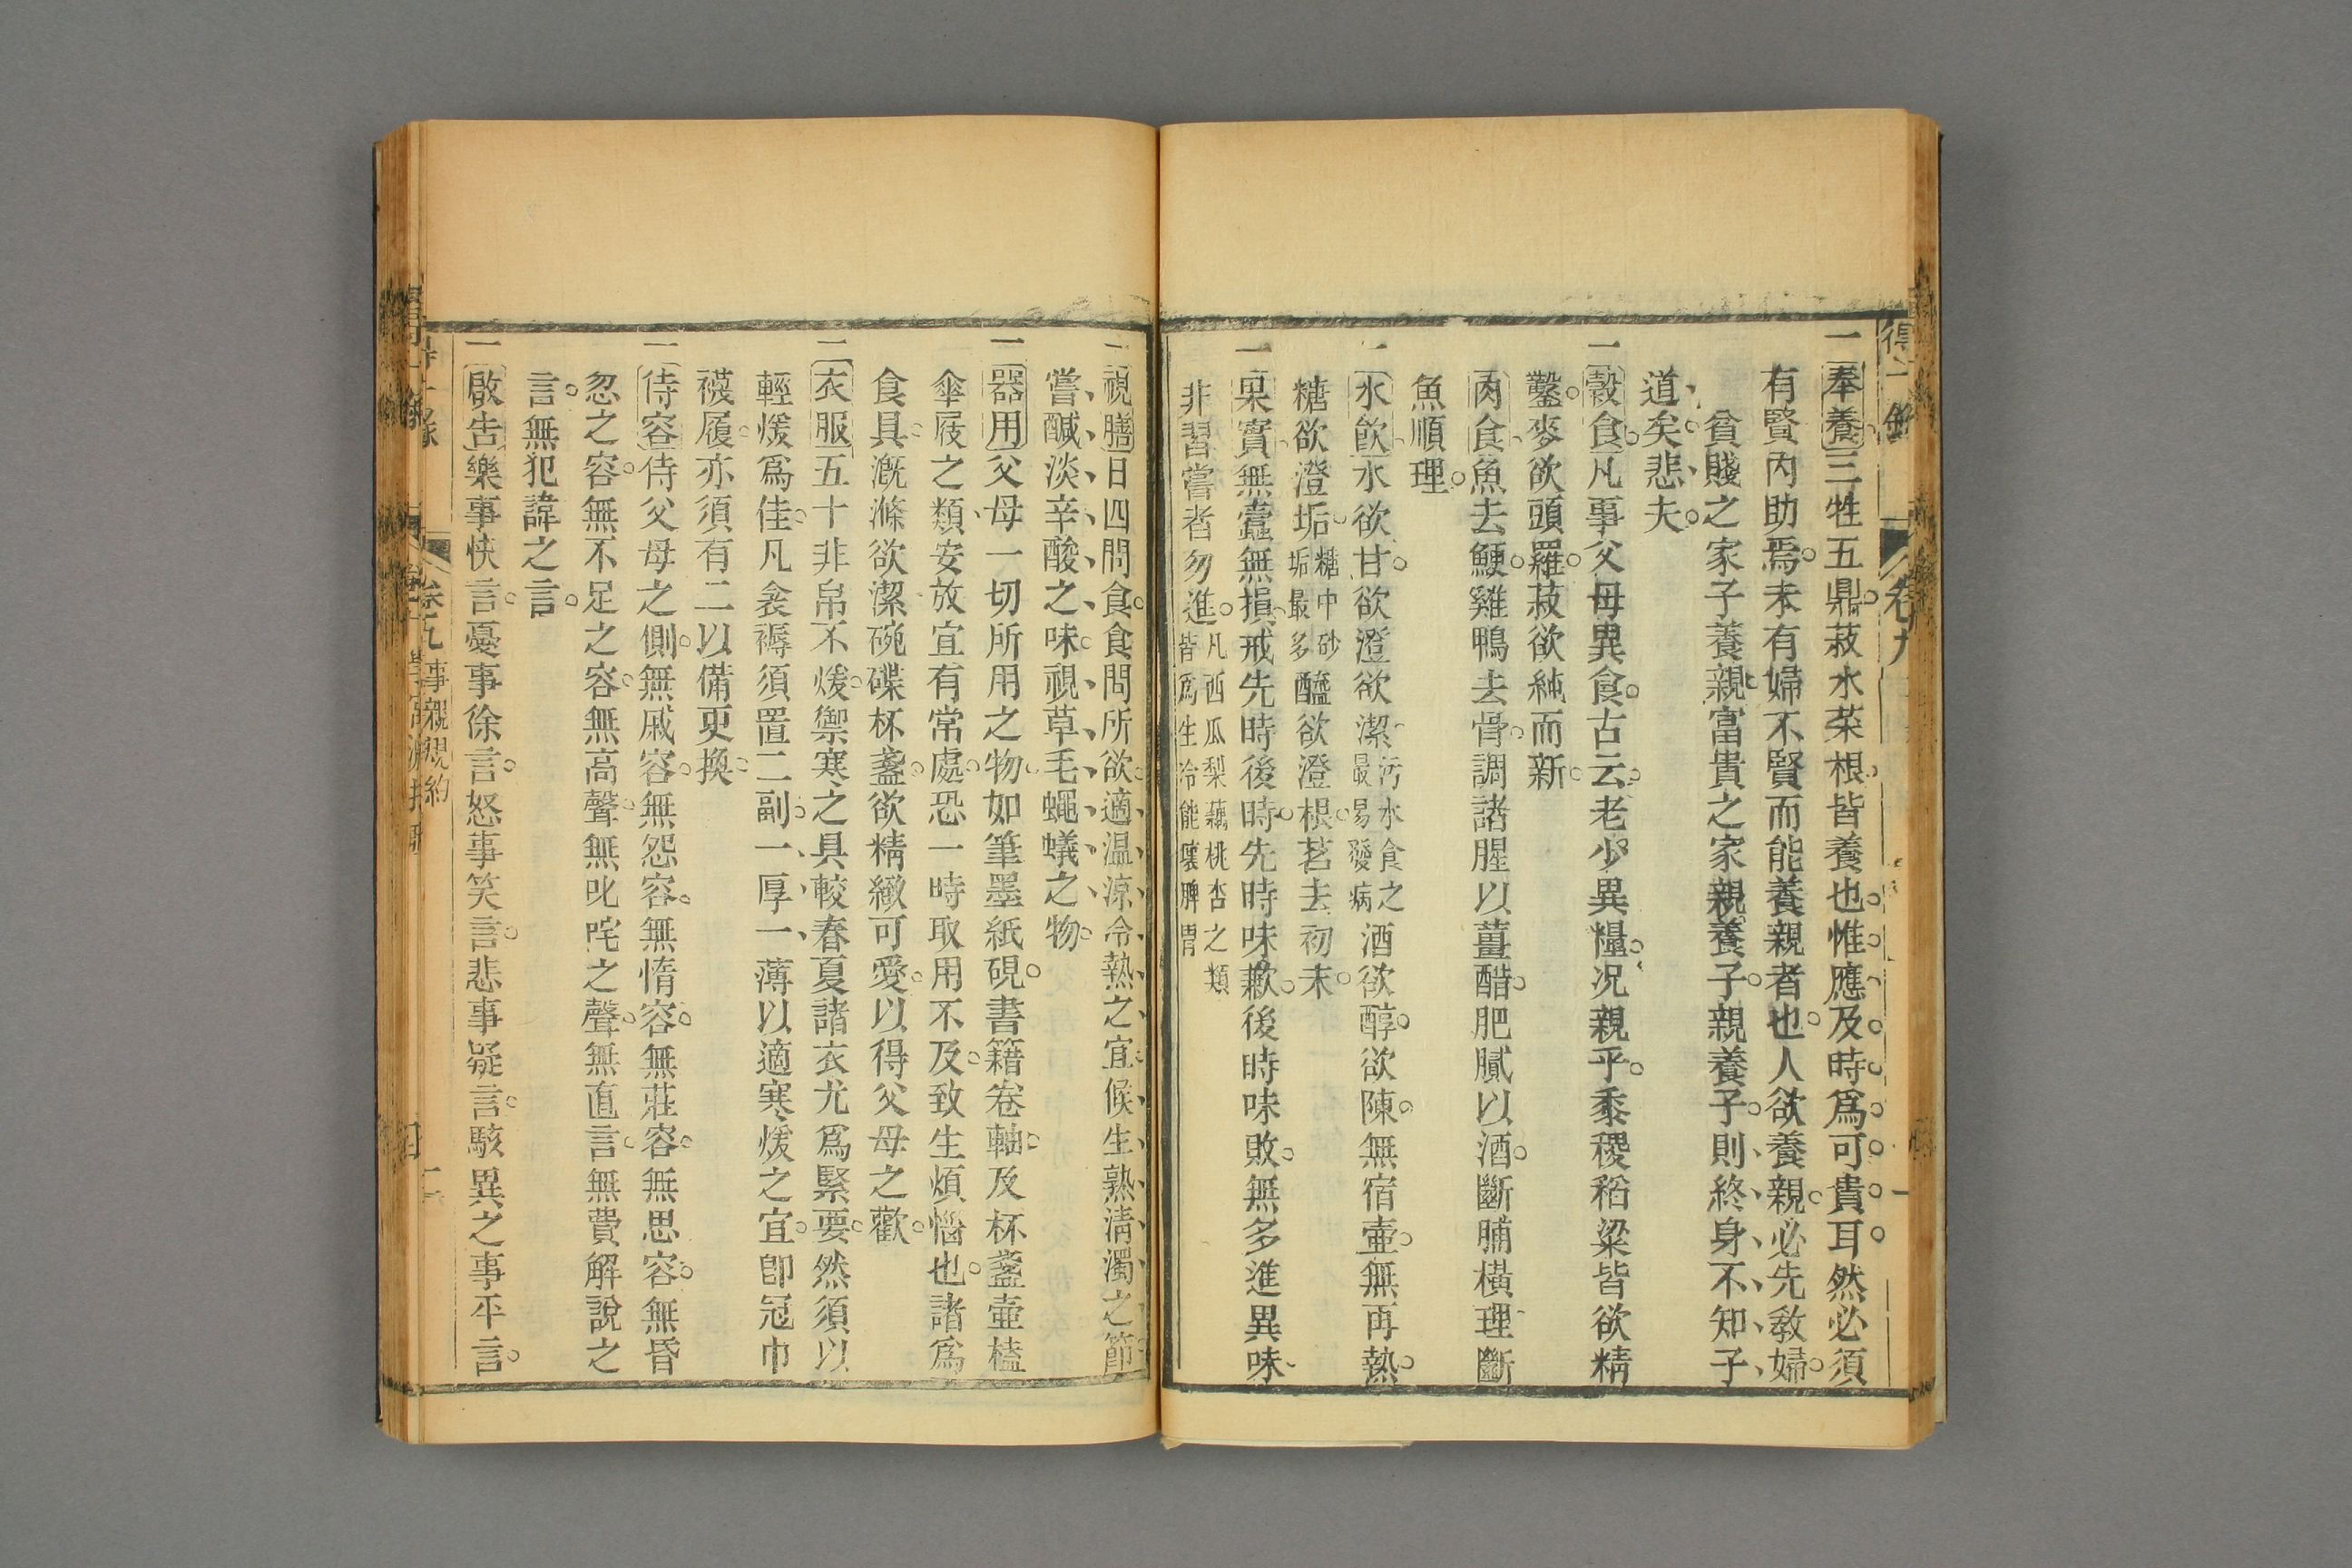 得一錄
卷九
一
一奉養三牲五鼎菽水菜根皆養也惟應及時爲可貴耳然必須
有賢內助焉未有婦不賢而能養親者也人欲養親必先教婦
貧賤之家子養親富貴之家親養子親養子則終身不知子
道矣悲夫
一穀食凡事父母異食古云老少異糧况親乎黍稷稻粱皆欲精
鑿麥欲頭羅菽欲純而新
肉食魚去鯁雞鴨去骨調諸腥以薑醋肥膩以酒斷脯橫理斷
魚順理
一水飮水欲甘欲澄欲潔汚水食之最易發病酒欲醇欲陳無宿壷無再熱
糖欲澄垢糖中砂垢最多醯欲澄根茗去初末
一果實無蠹無損戒先時後時先時味歉後時味敗無多進異味
非習嘗者勿進凡西瓜梨藕桃杏之類皆爲生冷能壞脾胃
一視膳日四問食食問所欲適温涼冷熱之宜候生熟淸濁之節
嘗鹹淡辛酸之味視草毛蠅蟻之物
一器用父母一切所用之物如筆墨紙硯書籍卷軸及杯盞壷榼
傘屐之類安放宜有常處恐一時取用不及致生煩惱也諸爲
食具漑滌欲潔碗碟杯盞欲精緻可愛以得父母之歡
一衣服五十非帛不煖禦寒之具較春夏諸衣尤爲緊要然須以
輕煖爲佳凡衾褥須置二副一厚一薄以適寒煖之宜卽冠巾
襪履亦須有二以備更換
一侍容侍父母之側無戚容無怨容無惰容無莊容無思容無昏
忽之容無不足之容無高聲無叱咤之聲無直言無費解說之
言無犯諱之言
一啟告樂事快言憂事徐言怒事笑言悲事疑言駭異之事平言
卷九
事親規約
二